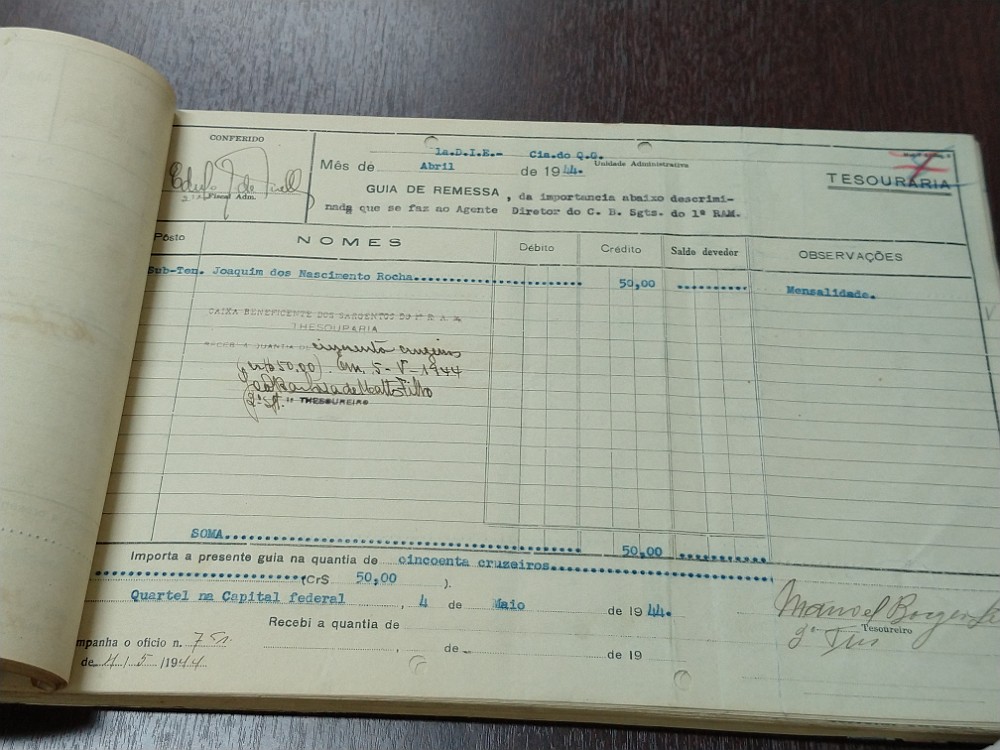 CONFERIDO
Fiscal Adm.
1a.D.I.E.- Cia.do Q.G.
Unidade Administrativa
Mês de Abril de 1944.
TESOURARIA
GUIA DE REMESSA, da importancia abaixo descrimi-
nada que se faz ao Agente Diretor do C. B. Sgts. do 1º RAM.
Pôsto NOMES Débito Crédito Saldo devedor OBSERVAÇÕES
Sub-Ten. Joaquim dos Nascimento Rocha 50,00 Mensalidade.
CAIXA BENEFICENTE DOS SARGENTOS DO 1º R A M
THESOURARIA
RECEBI A QUANTIA DE cinquenta cruzeiros
50,00). Em, 5-V-1944
de Mattos Filho
2º Sgt. THESOUREIRO
SOMA 50,00
Importa a presente guia na quantia de cincoenta cruzeiros
(Cr$ 50,00 ).
Quartel na Capital federal, 4 de Maio de 1944.
Manoel Borges
Tesoureiro
Recebi a quantia de
, de de 19
mpanha o oficio n. 7
de 4/5/1944